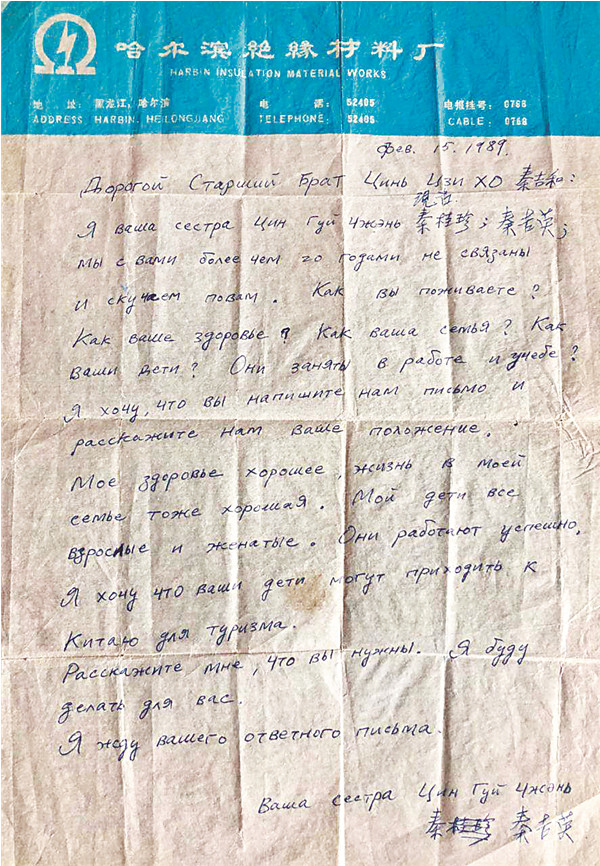 哈尔滨絶緣材料厂
HARBIN INSULATION MATERIAL WORKS
地 址: 黑龙江,哈尔滨 电 话: 52405 电报挂号: 0766
ADDRESS HARBIN, HEILONGJIANG TELEPHONE: 52405 CABLE: 0766
Фев. 15. 1989.
Дорогой Старший Брат Цинь Цзи ХО 秦吉和:
现在
Я ваша сестра Цин Гуй Чжэнь 秦桂珍; 秦吉英;
мы с вами более чем 20 годами не связаны
и скучаем повам. Как вы поживаете?
Как ваше здоровье? Как ваша семья? Как
ваши дети? Они заняты в работе и учебе?
Я хочу, что вы напишите нам письмо и
расскажите нам ваше положение.
Мое здоровье хорошее, жизнь в моей
семье тоже хорошая. Мой дети все
взрослые и женатые. Они работают успешно.
Я хочу что ваши дети могут приходить к
Китаю для туризма.
Расскажите мне, что вы нужны. Я буду
делать для вас.
Я жду вашего ответного письма.
Ваша сестра Цин Гуй Чжэнь
秦桂珍 秦吉英